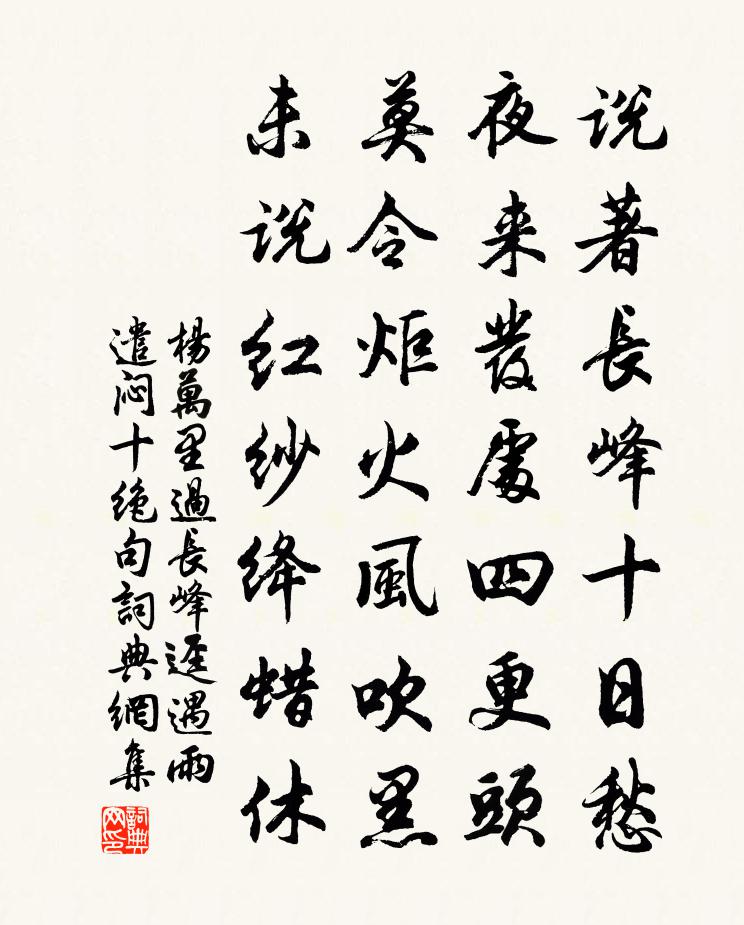 说著長峰十日愁
夜来發處四更頭
莫令炬火風吹黑
未说红纱绛蜡休
楊萬里過長峰逕遇雨
遣闷十绝句詞典網集
詞典网印